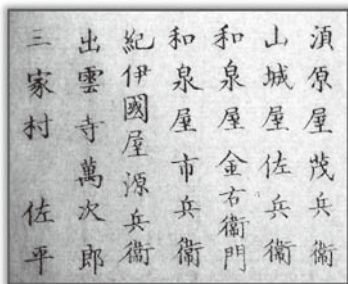 須原屋茂兵衛
山城屋佐兵衛
和泉屋金右衛門
和泉屋市兵衛
紀伊國屋源兵衛
出雲寺萬次郎
三家村佐平